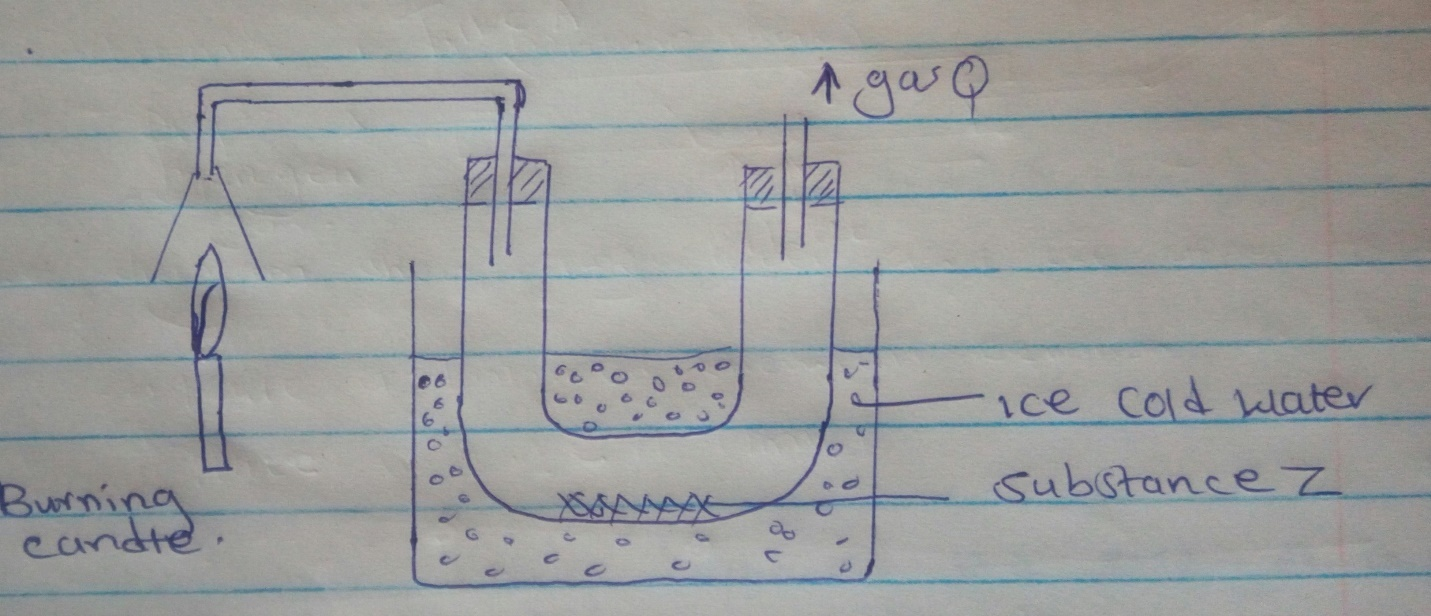 ↑ gas Q
ice cold water
substance Z
Burning
candte.